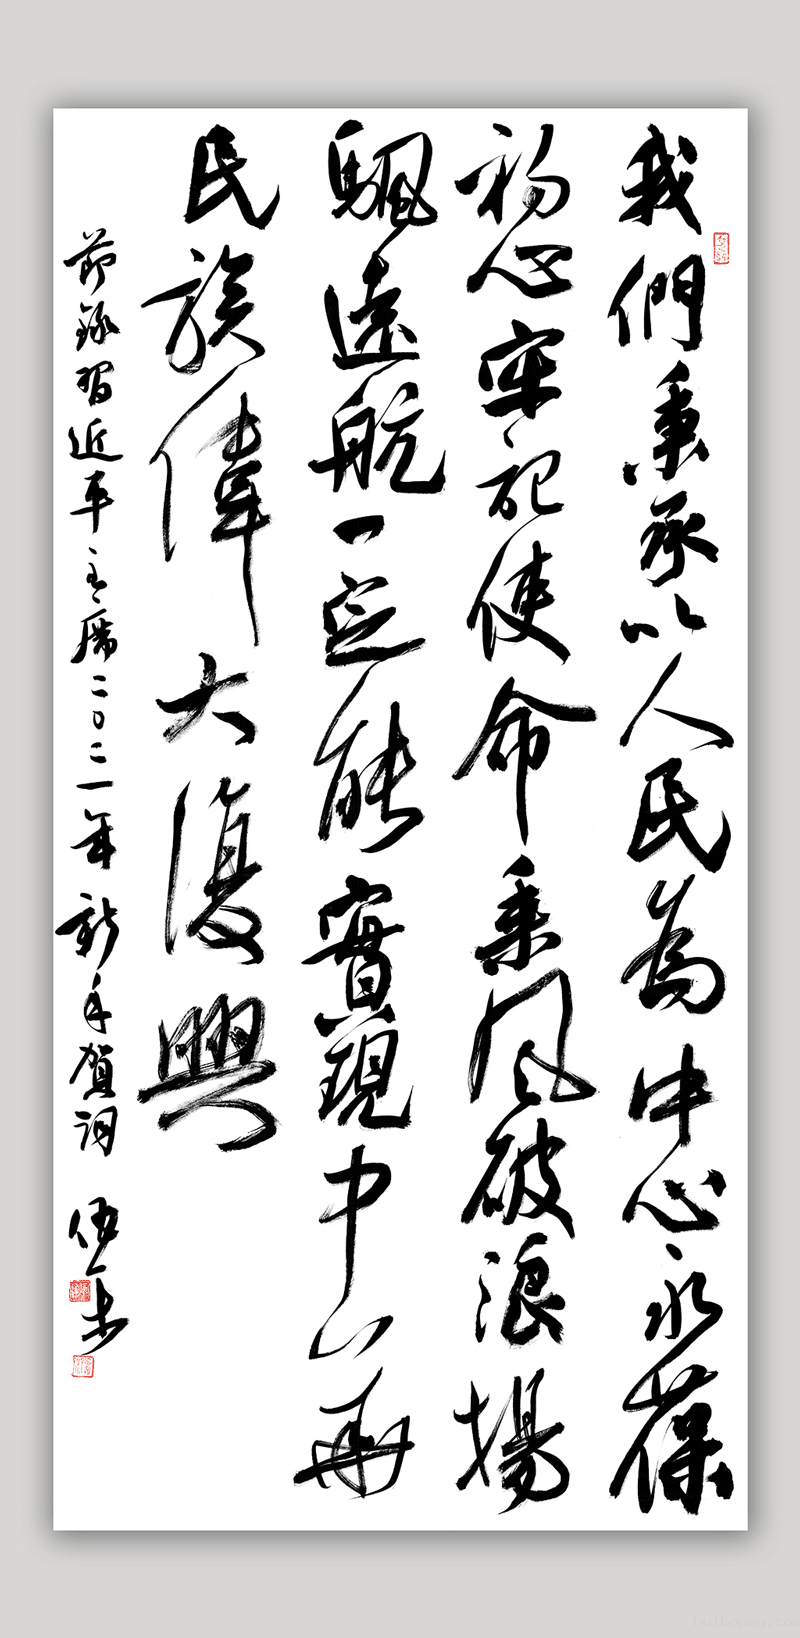 我們秉承以人民為中心永葆
初心牢記使命乘風破浪揚
颿遠航一定能實現中華
民族偉大復興
節錄習近平主席二〇二一年新年賀詞